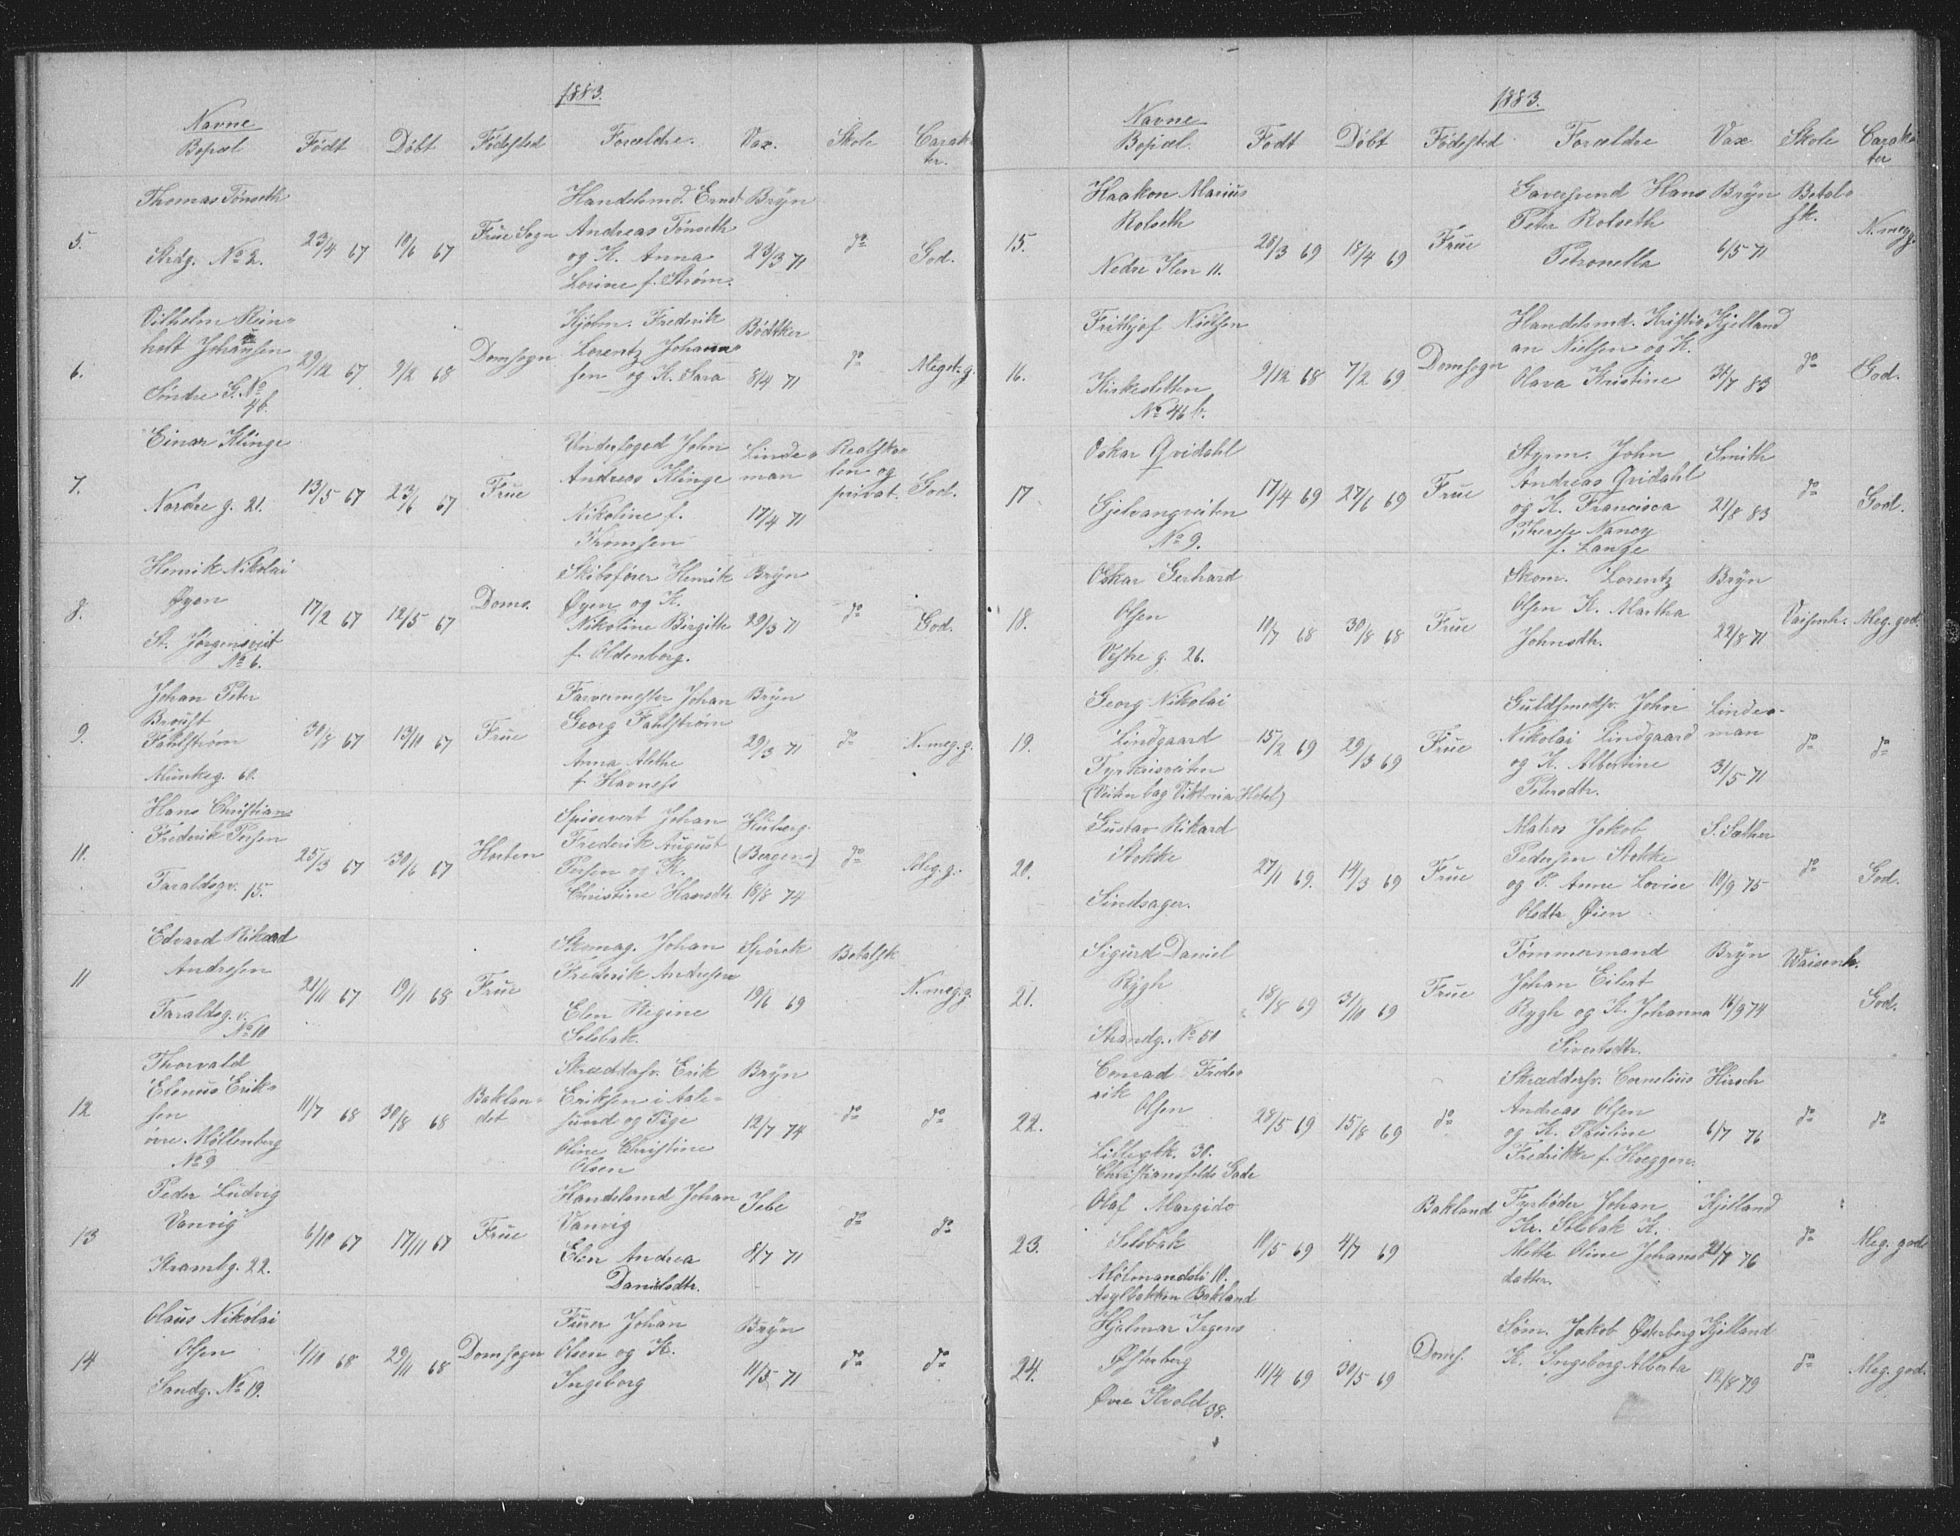 1883.
Navne
Bopæl Født Døbt Fødested Forældre. Vax. Skole Carak-
ter.
5. Thomas Tønseth
Strdg. No 2.
23/4 67 10/6 67 Frue Sogn
Handelsmd. Ernst
Andreas Tønseth
og K. Anna
Lorine f. Strøm.
Bryn
23/3 71
do
God.
6. Vilhelm Rein-
holt Johansen
Søndre G. No
4b.
29/12 67 9/2 68 Domsogn
Kjøbm. Frederik
Lorentz Johann-
sen og K. Sara
Bødtker
8/4 71
do
Meget g.
7. Einar Klinge
Nordre g. 21.
13/5 67 23/6 67 Frue
Underfoged John
Andreas Klinge
Nikoline f.
Thomsen
Linde-
man
17/4 71
Realsko-
len og
privat.
God.
8. Henrik Nikolai
Øyen
St. Jørgensveit
No 6.
17/2 67 12/5 67 Doms.
Skibsfører Henrik
Øyen og K.
Nikoline Birgitte
f. Oldenborg.
Bryn
29/3 71
do
God.
9. Johan Peter
Broust
Fahlstrøm
Munkeg. 60.
30/8 67 13/10 67 Frue
Farvermester Johan
Georg Fahlstrøm
Anna Alethe
f. Havness
Bryn
29/3 71
do
N. meg. g.
10. Hans Christian
Frederik Persen
Taraldsgv. 15.
25/3 67 30/6 67 Horten
Spisevert Johan
Frederik August
Persen og K.
Christine Hansdtr
(Bergen)
18/8 74
do
Meg. g.
11 Edvard Rikard
Andresen
Taraldsg. v.
No 10
21/11 67 19/1 68 Frue
Skomag. Johan
Frederik Andresen
Elen Regine
Solsbak.
Spørck
19/6 69
Betalsk
N. meg. g.
12 Thorvald
Elenus Erik-
sen
øvre Møllenberg
No 9
11/7 68 30/8 68 Baklan-
det
Skræddersv. Erik
Eriksen i Aale-
sund og Pige
Oline Christine
Olsen
Bryn
12/7 74
do
do
13 Peder Ludvig
Vanvig
Krambg. 22.
6/10 67 17/11 67 Frue
Handelsmd Johan
Vanvig
Elen Andrea
Danielsdtr.
Jebe
8/7 71
do
do
14 Olaus Nikolai
Olsen
Sandg. No 19.
1/10 68 29/11 68 Domsogn
Furer Johan
Olsen og K.
Ingeborg
Bryn
11/5 71
do
do
1883.
Navne
Bopæl. Født Døbt Fødested Forældre Vax Skole Carak-
ter
15. Haakon Marius
Rolseth
Nedre Ilen 11.
20/3 69 18/4 69 Frue
Gaversvend Hans
Peter Rolseth
Petronella
Bryn
6/5 71
Betal-
sk.
N. meg g.
16. Frithjof Nielsen
Kirkesletten
No 46 b.
9/12 68 7/2 69 Domsogn
Handelsmd. Kristi-
an Nielsen og K.
Olava Kristine
Kjelland
31/7 83
do
God.
17 Oskar Qvidahl
Gjelvangveiten
No 9.
17/4 69 27/6 69 Frue
Styrm. John
Andreas Qvidahl
og K. Francisca
Therese Nancy
f. Lange
Smith
21/8 83
do
God.
18. Oskar Gerhard
Olsen
Vestre g. 26.
10/7 68 30/8 68 Frue
Skom. Lorentz
Olsen K. Martha
Johnsdtr.
Bryn
22/8 71
Vaisenh.
Meg. god.
19. Georg Nikolai
Lindgaard
Tyrkrisveiten
(Veiten bag Viktoria Hotel)
15/2 69 29/3 69 Frue
Guldsmedsv. John
Nikolai Lindgaard
og K. Albertine
Petersdtr.
Linde-
man
31/5 71
do
do
20. Gustav Rikard
Stokke
Sindsager.
27/1 69. 14/3 69 Frue
Matros Jakob
Pedersen Stokke
og P. Anne Lovise
Olsdtr Øien
S. Sæther
10/9 75
do
God.
21. Sigurd Daniel
Rygh
Strandg. No 51
18/8 69 31/10 69 Frue
Tømmermand
Johan Eilert
Rygh og K. Johanna
Sivertsdtr.
Bryn
16/9 74
Waisenh.
God.
22. Conrad Frede-
rik
Olsen
Lillegbk. 30.
Christiansfelds Gade
28/5 69 15/8 69 do
Skræddersv. Cornelius
Andreas Olsen
og K. Pauline
Fredrikke f. Hoeggen.
Hirsch
6/7 76
do
do
23. Olaf Margido
Solsbak
Mølmandsli 10.
Asylbakken Bakland
10/5 69 4/7 69 Bakland
Fyrbøder Johan
Kr. Solsbak K.
Mette Oline Johans-
datter.
Kjelland
21/7 76
do
Meg. god
24. Hjelmar Irgens
Østerberg
Øvre Ilvold 38.
11/4 69 30/5 69 Doms.
Søm. Jakob Østerberg
K. Ingeborg Alberta
Kjelland
12/8 79
do
Meg. god.